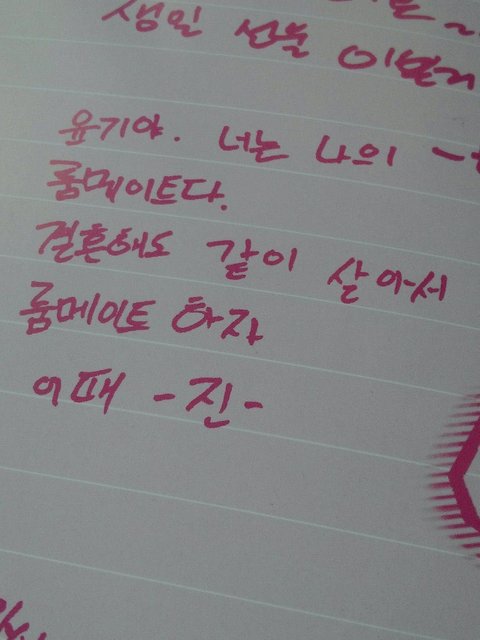 생일 선물
윤기야. 너는 나의
룸메이트다.
결혼해도 같이 살아서
룸메이트 하자
어때 -진-